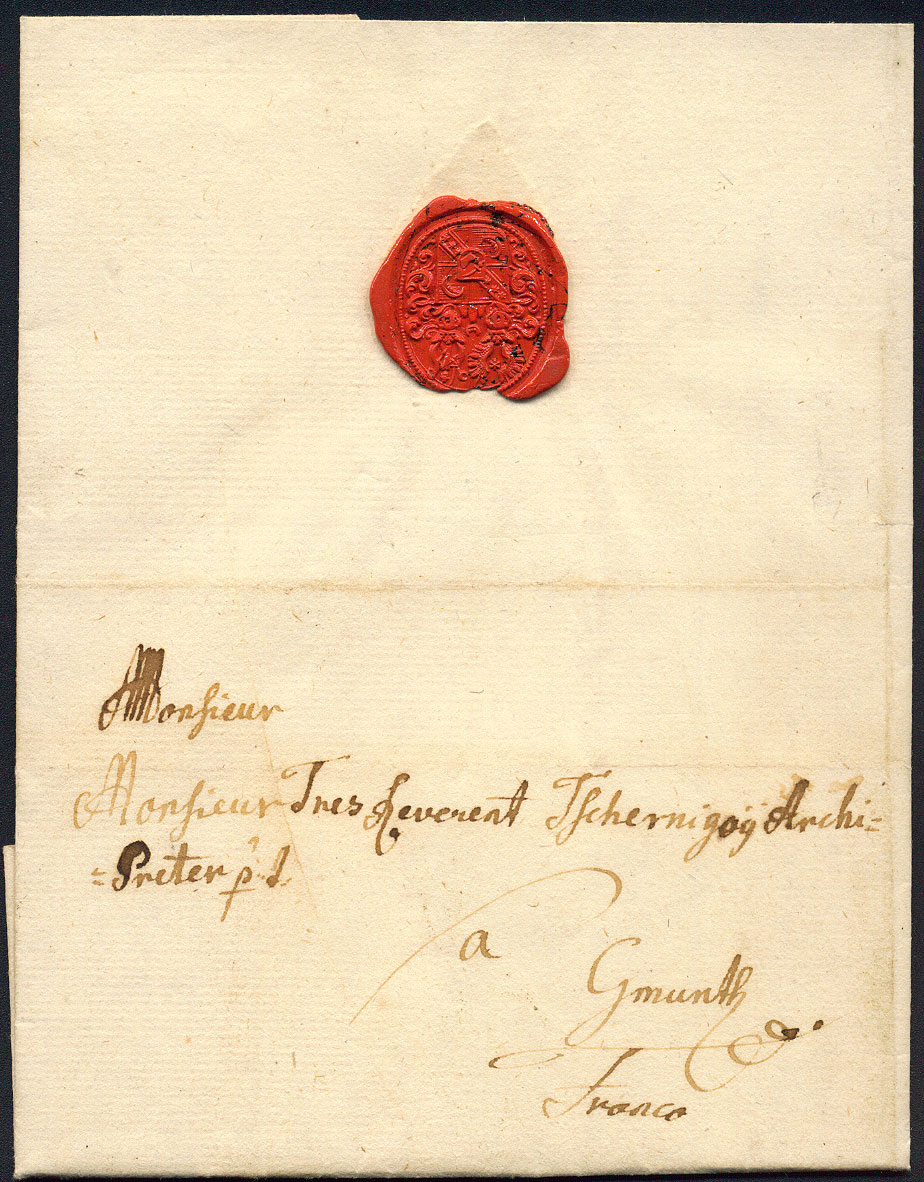 Monsieur
Monsieur Tres Reverent Tschernigoÿ Archi=
=Preter p. l.
a
Gmunth
Franco